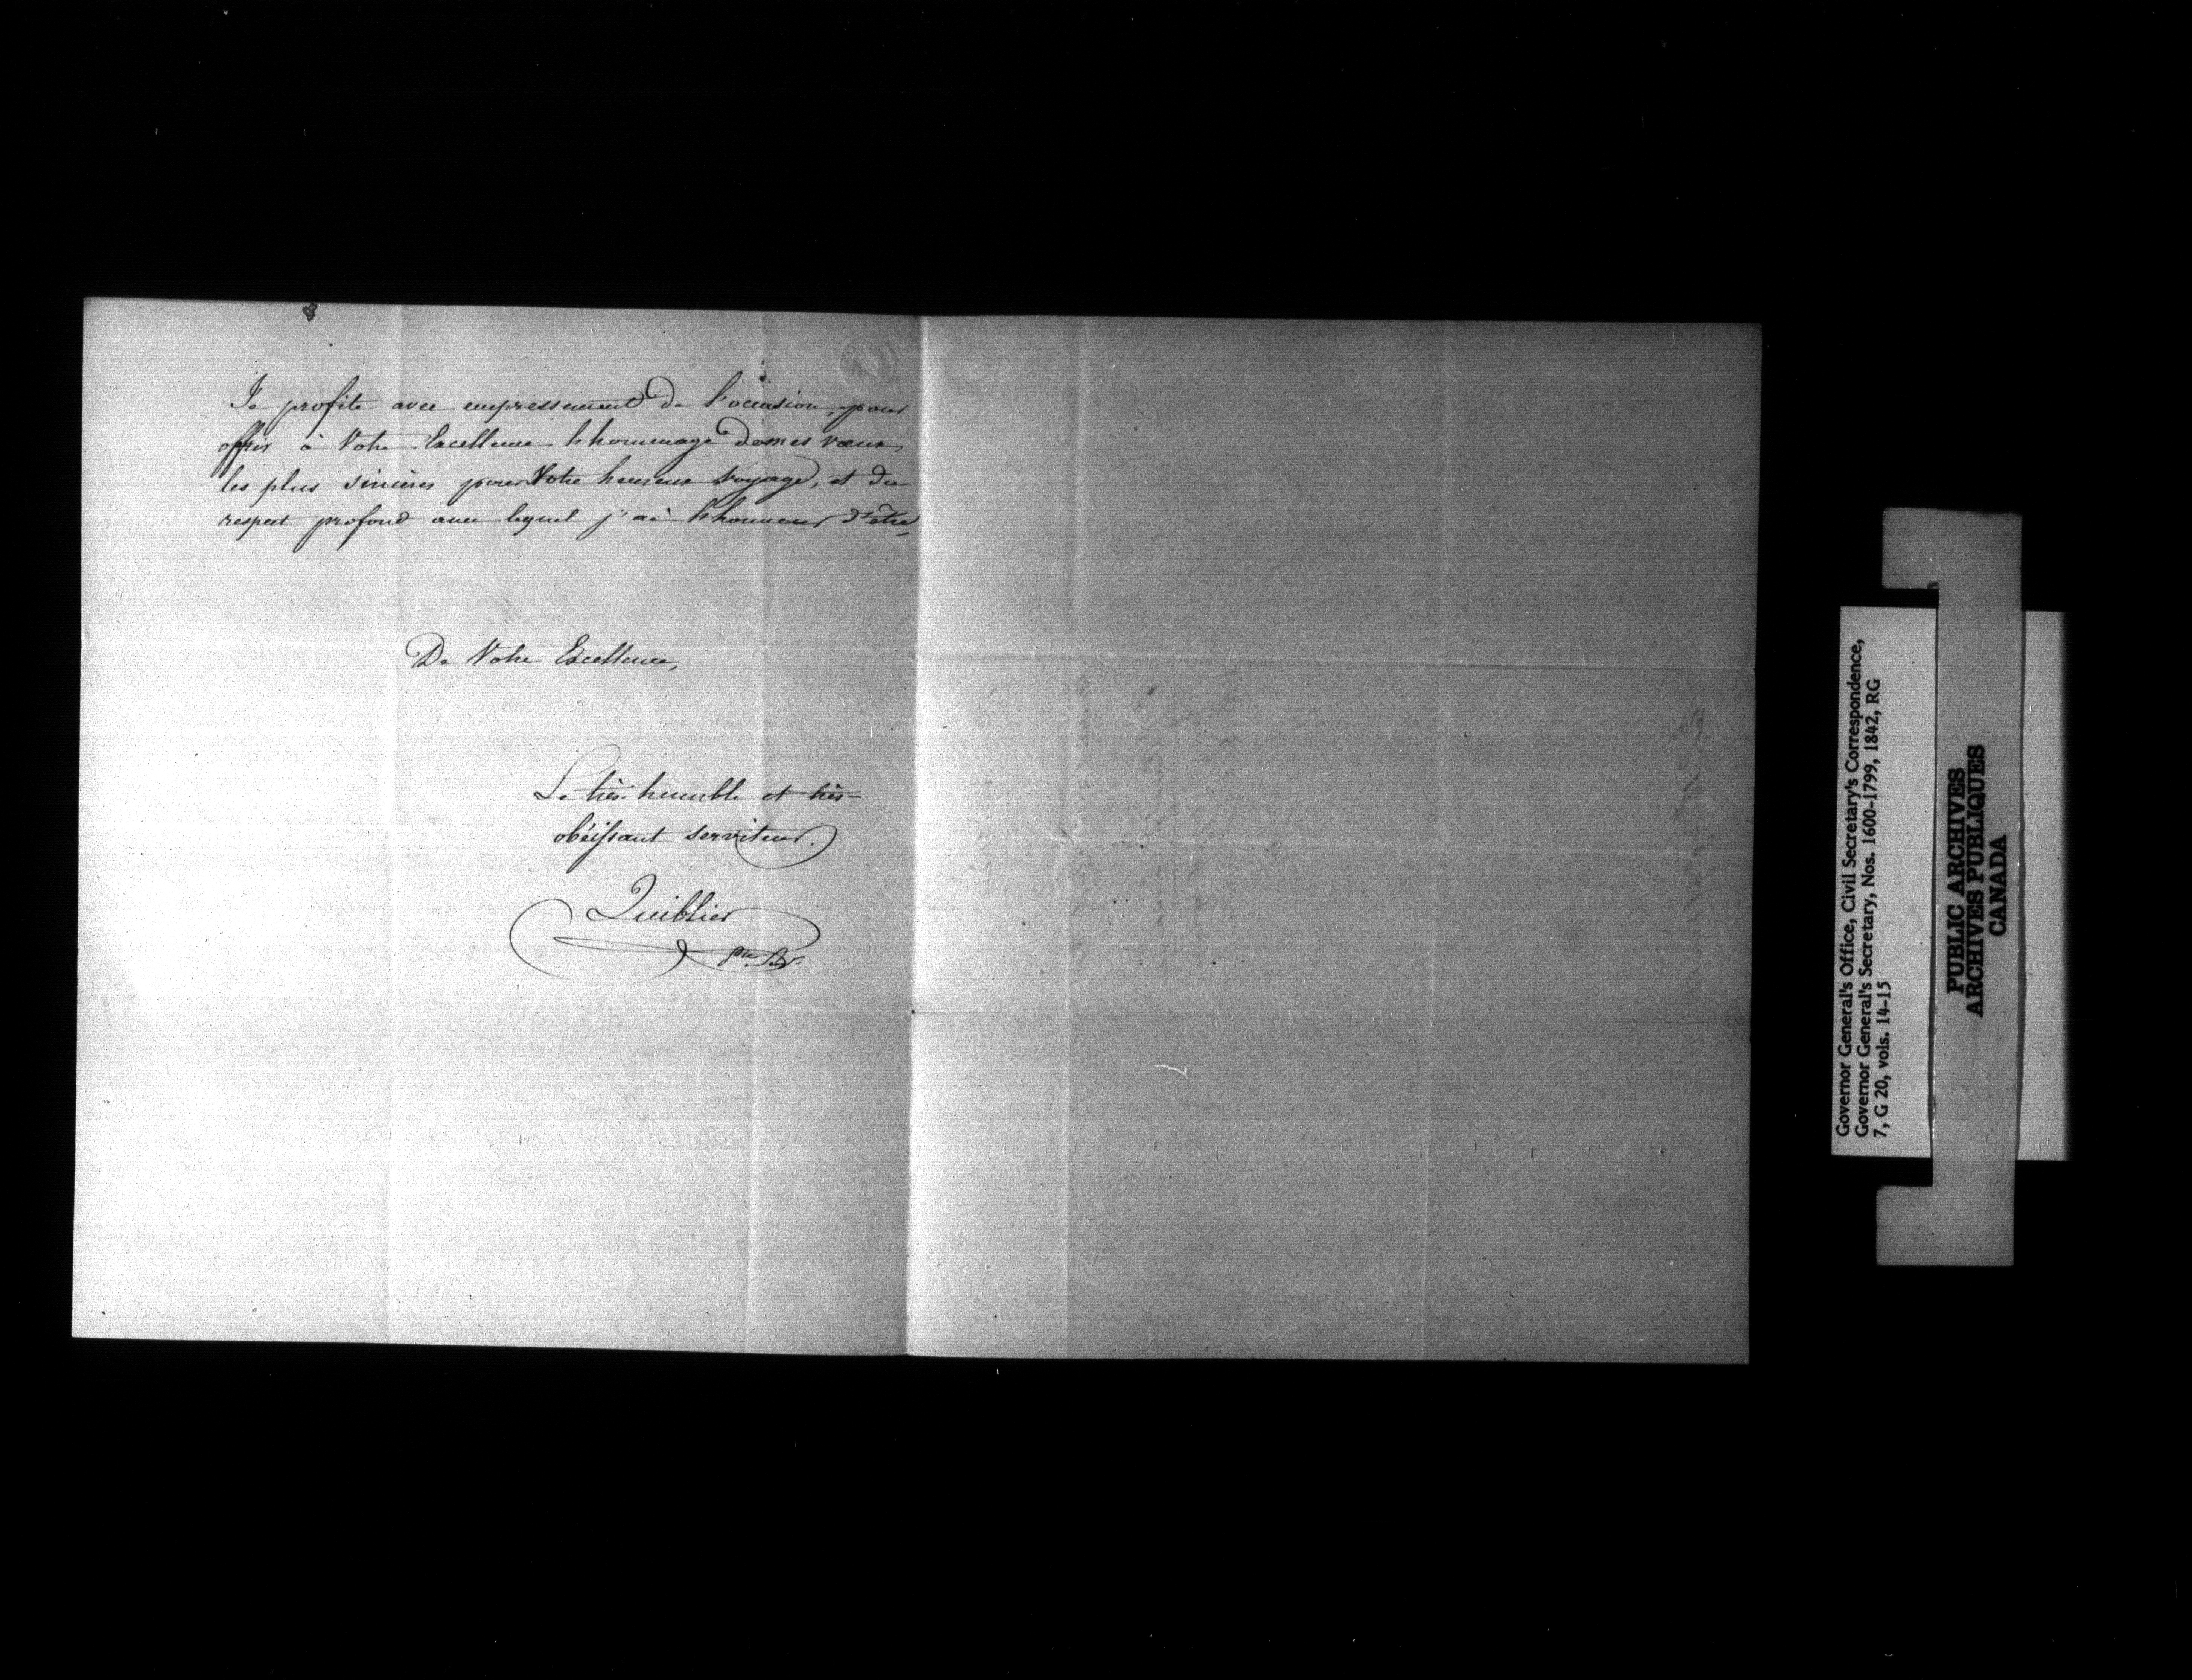 Je profite avec empressement de l'occasion, pour
offrir à Votre Excellence l'hommage de mes vœux
les plus sincères pour Votre heureux voyage, et du
respect profond avec lequel j'ai l'honneur d'être,
De Votre Excellence,
Le très-humble et très-
obéissant serviteur.
Quiblier
Governor General's Office, Civil Secretary's Correspondence,
Governor General's Secretary, Nos. 1600-1799, 1842, RG
7, G 20, vols. 14-15
PUBLIC ARCHIVES
ARCHIVES PUBLIQUES
CANADA